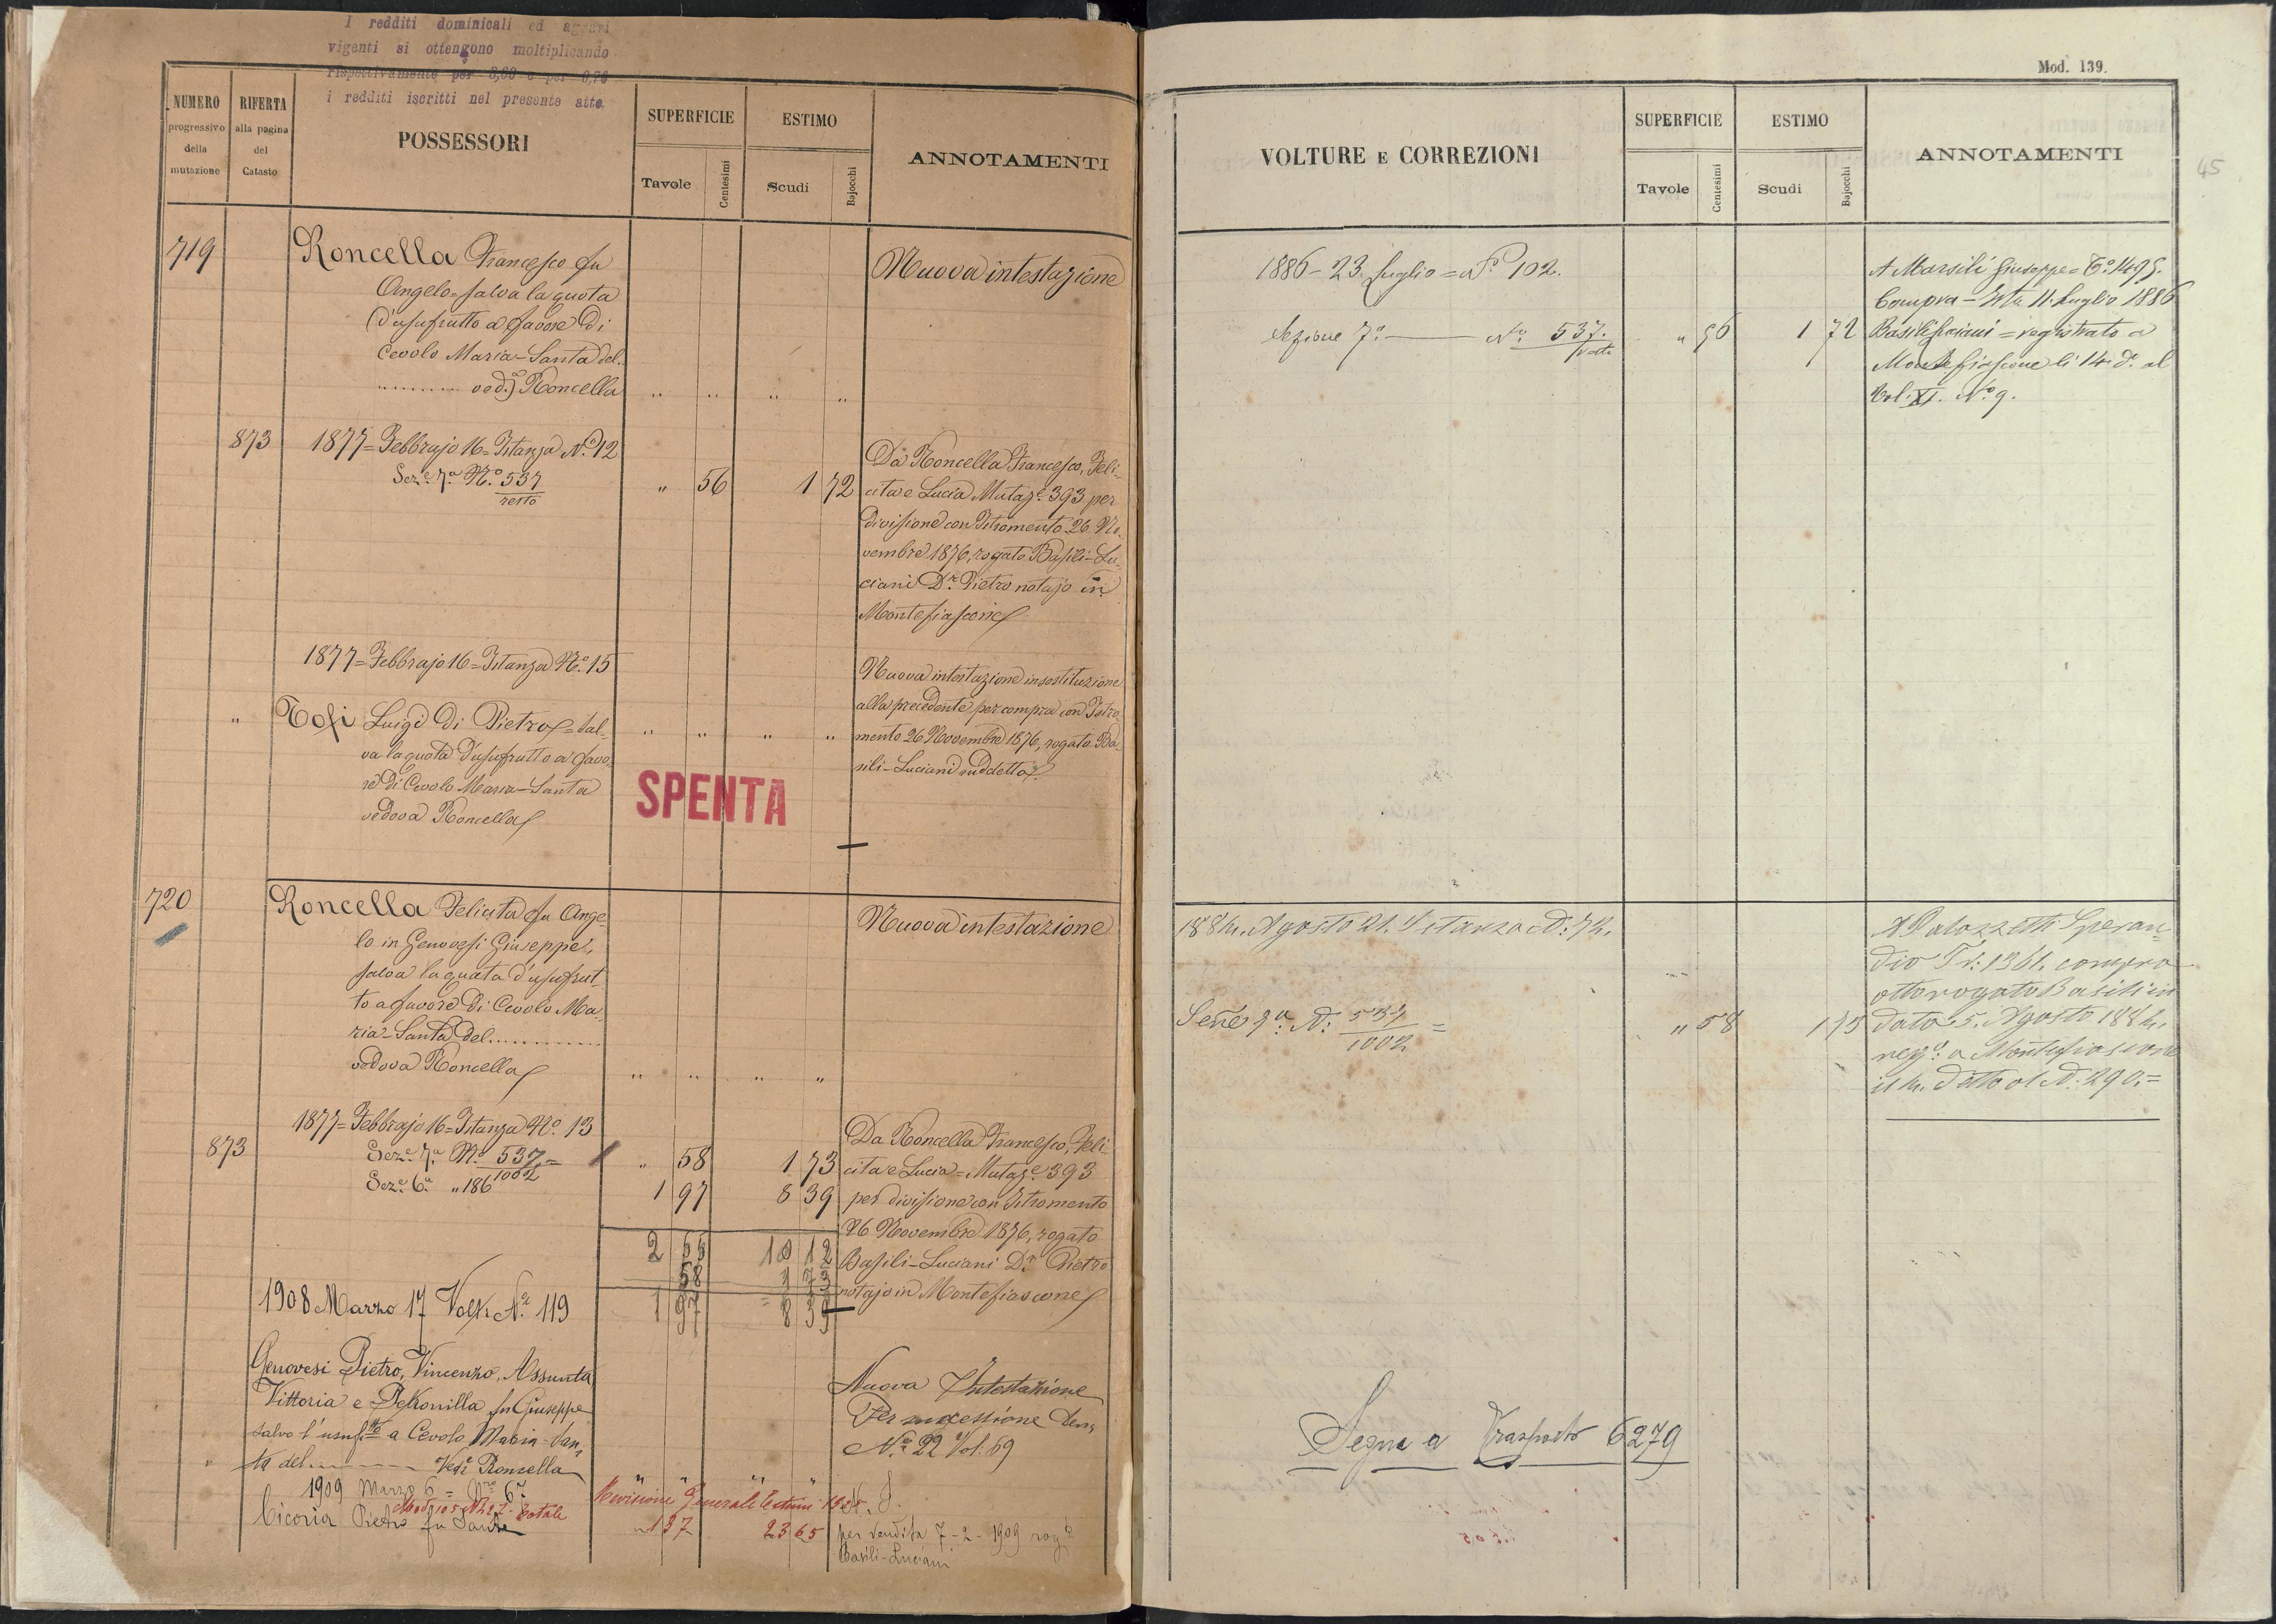 I redditi dominicali ed agrari
vigenti si ottengono moltiplicando
rispettivamente per
i redditi iscritti nel presente atto
NUMERO
progressivo
della
mutazione
RIFERTA
alla pagina
del
Catasto
POSSESSORI
SUPERFICIE
Tavole
Centesimi
ESTIMO
Scudi
Bajocchi
ANNOTAMENTI
719
Roncella Francesco fu
Angelo = salva la quota
d'usufrutto a favore di
Cevolo Maria-Santa del
............ ved.a Roncella " " " "
Nuova intestazione
873 1877 = Febbrajo 16 = Istanza N.o 12
Sez.e 7.a N.o 537/resto " 56 1 72
Da Roncella Francesco, Feli-
cita e Lucia Mutaz.e 393 per
divisione con Istromento 26 No-
vembre 1876, rogato Basili-Lu-
ciani D.r Pietro notajo in
Montefiascone
1877 = Febbrajo 16 = Istanza N.o 15
" Tofi Luigi di Pietro = sal-
va la quota d'usufrutto a favo-
re di Cevolo Maria-Santa
vedova Roncella
" " " "
Nuova intestazione in sostituzione
alla precedente per compra con Istro-
mento 26 Novembre 1876, rogato Ba-
sili-Luciani suddetto
SPENTA
720
Roncella Felicita fu Ange-
lo in Genovesi Giuseppe,
salva la quota d'usufrut-
to a favore di Cevolo Ma-
ria-Santa del............
vedova Roncella " " " "
Nuova intestazione
1877 = Febbrajo 16 = Istanza N.o 13
873 Sez.e 7.a N.o 537/1002 = " 58 1 73
Sez.e 6.a " 186 1 97 8 39
2 55 10 12
58 1 73
1 97 8 39
Da Roncella Francesco, Feli-
cita e Lucia = Mutaz.e 393
per divisione con Istromento
26 Novembre 1876, rogato
Basili-Luciani D.r Pietro
notajo in Montefiascone
1908 Marzo 17 Volt. N.o 119
Genovesi Pietro, Vincenzo, Assunta
Vittoria e Petronilla fu Giuseppe
salvo l'usuf.tto a Cevolo Maria-San-
" ta del ........ Ved.a Roncella " " " "
Nuova Intestazione
Per successione den.
N.o 22 Vol. 69
1909 Marzo 6 =
Cicoria Pietro fu Sante
Totale
Revisione Generale Estimi
137 2365
N. I.
per vendita 7-2-1909 rog.o
Basili-Luciani
Mod. 139.
45
VOLTURE E CORREZIONI
SUPERFICIE
Tavole
Centesimi
ESTIMO
Scudi
Bajocchi
ANNOTAMENTI
1886 - 23 Luglio = N.o 102.
Sezione 7.a — N.o 537./resto " 56 1 72
A Marsili Giuseppe =
Compra - Ist.o 11. Luglio 1886
Basili Luciani = registrato a
Montefiascone li 14 d.o al
Vol. XI. N.o 9.
1884. Agosto 21. Istanza N: 72.
Sene 7.a N: 537/1002 = " 58 1 73
A Palozzetti Speran-
dio T.: 1361. compra
atto rogato Basili in
dato 5. Agosto 1884.
reg.o a Montefiascone
il 14. detto al N: 290. =
Segue a Trasporto 6279